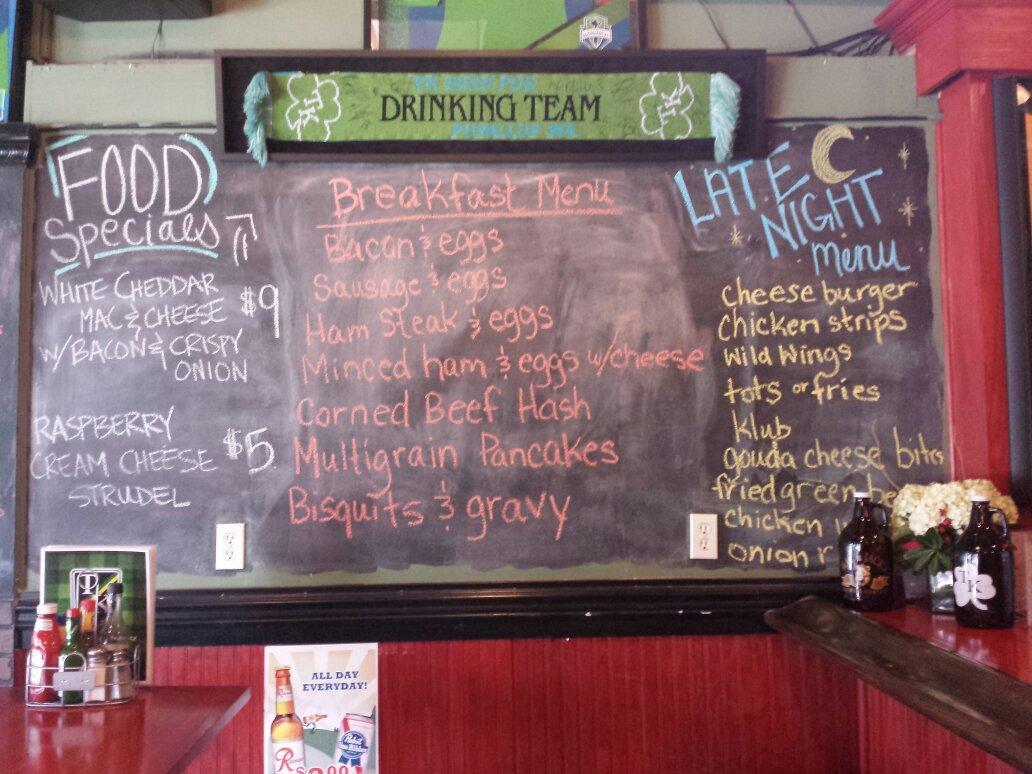 TK IRISH PUB
DRINKING TEAM
PUYALLUP WA
FOOD
Specials
WHITE CHEDDAR
MAC & CHEESE
W/BACON & CRISPY
ONION
$9
RASPBERRY
CREAM CHEESE
STRUDEL
$5
Breakfast Menu
Bacon & eggs
Sausage & eggs
Ham Steak & eggs
Minced ham & eggs w/cheese
Corned Beef Hash
Multigrain Pancakes
Bisquits & gravy
LATE
NIGHT
menu
cheese burger
chicken strips
wild wings
tots or fries
klub
gouda cheese bites
fried green
chicken
onion
TK
TK
ALL DAY
EVERYDAY!
R
Pabst